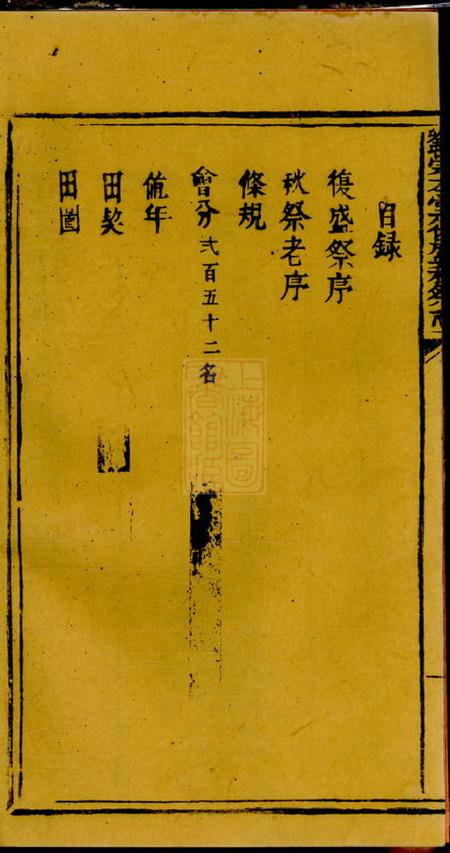 目録
復盛祭序
秋祭老序
條規
會分弍百五十二名
值年
田契
田圖
上海圖書館藏